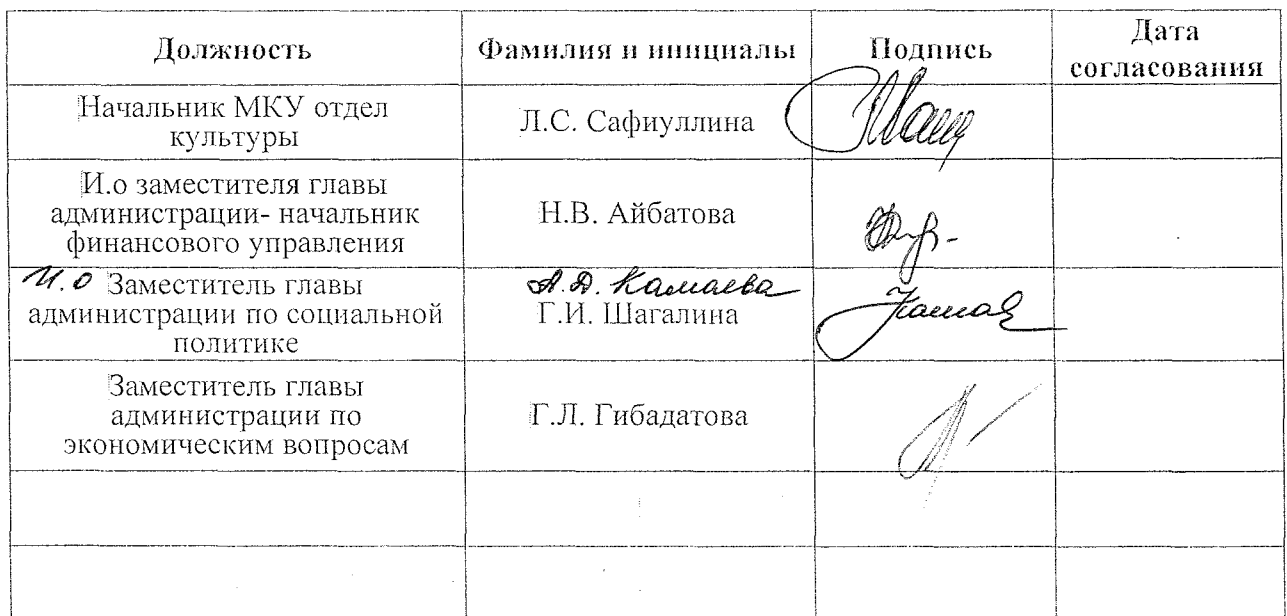 Должность Фамилия и инициалы Подпись Дата
согласования
Начальник МКУ отдел
культуры
Л.С. Сафиуллина
И.о заместителя главы
администрации- начальник
финансового управления
Н.В. Айбатова
И.о Заместитель главы
администрации по социальной
политике
А.Д. Камаева
Г.И. Шагалина
Заместитель главы
администрации по
экономическим вопросам
Г.Л. Гибадатова